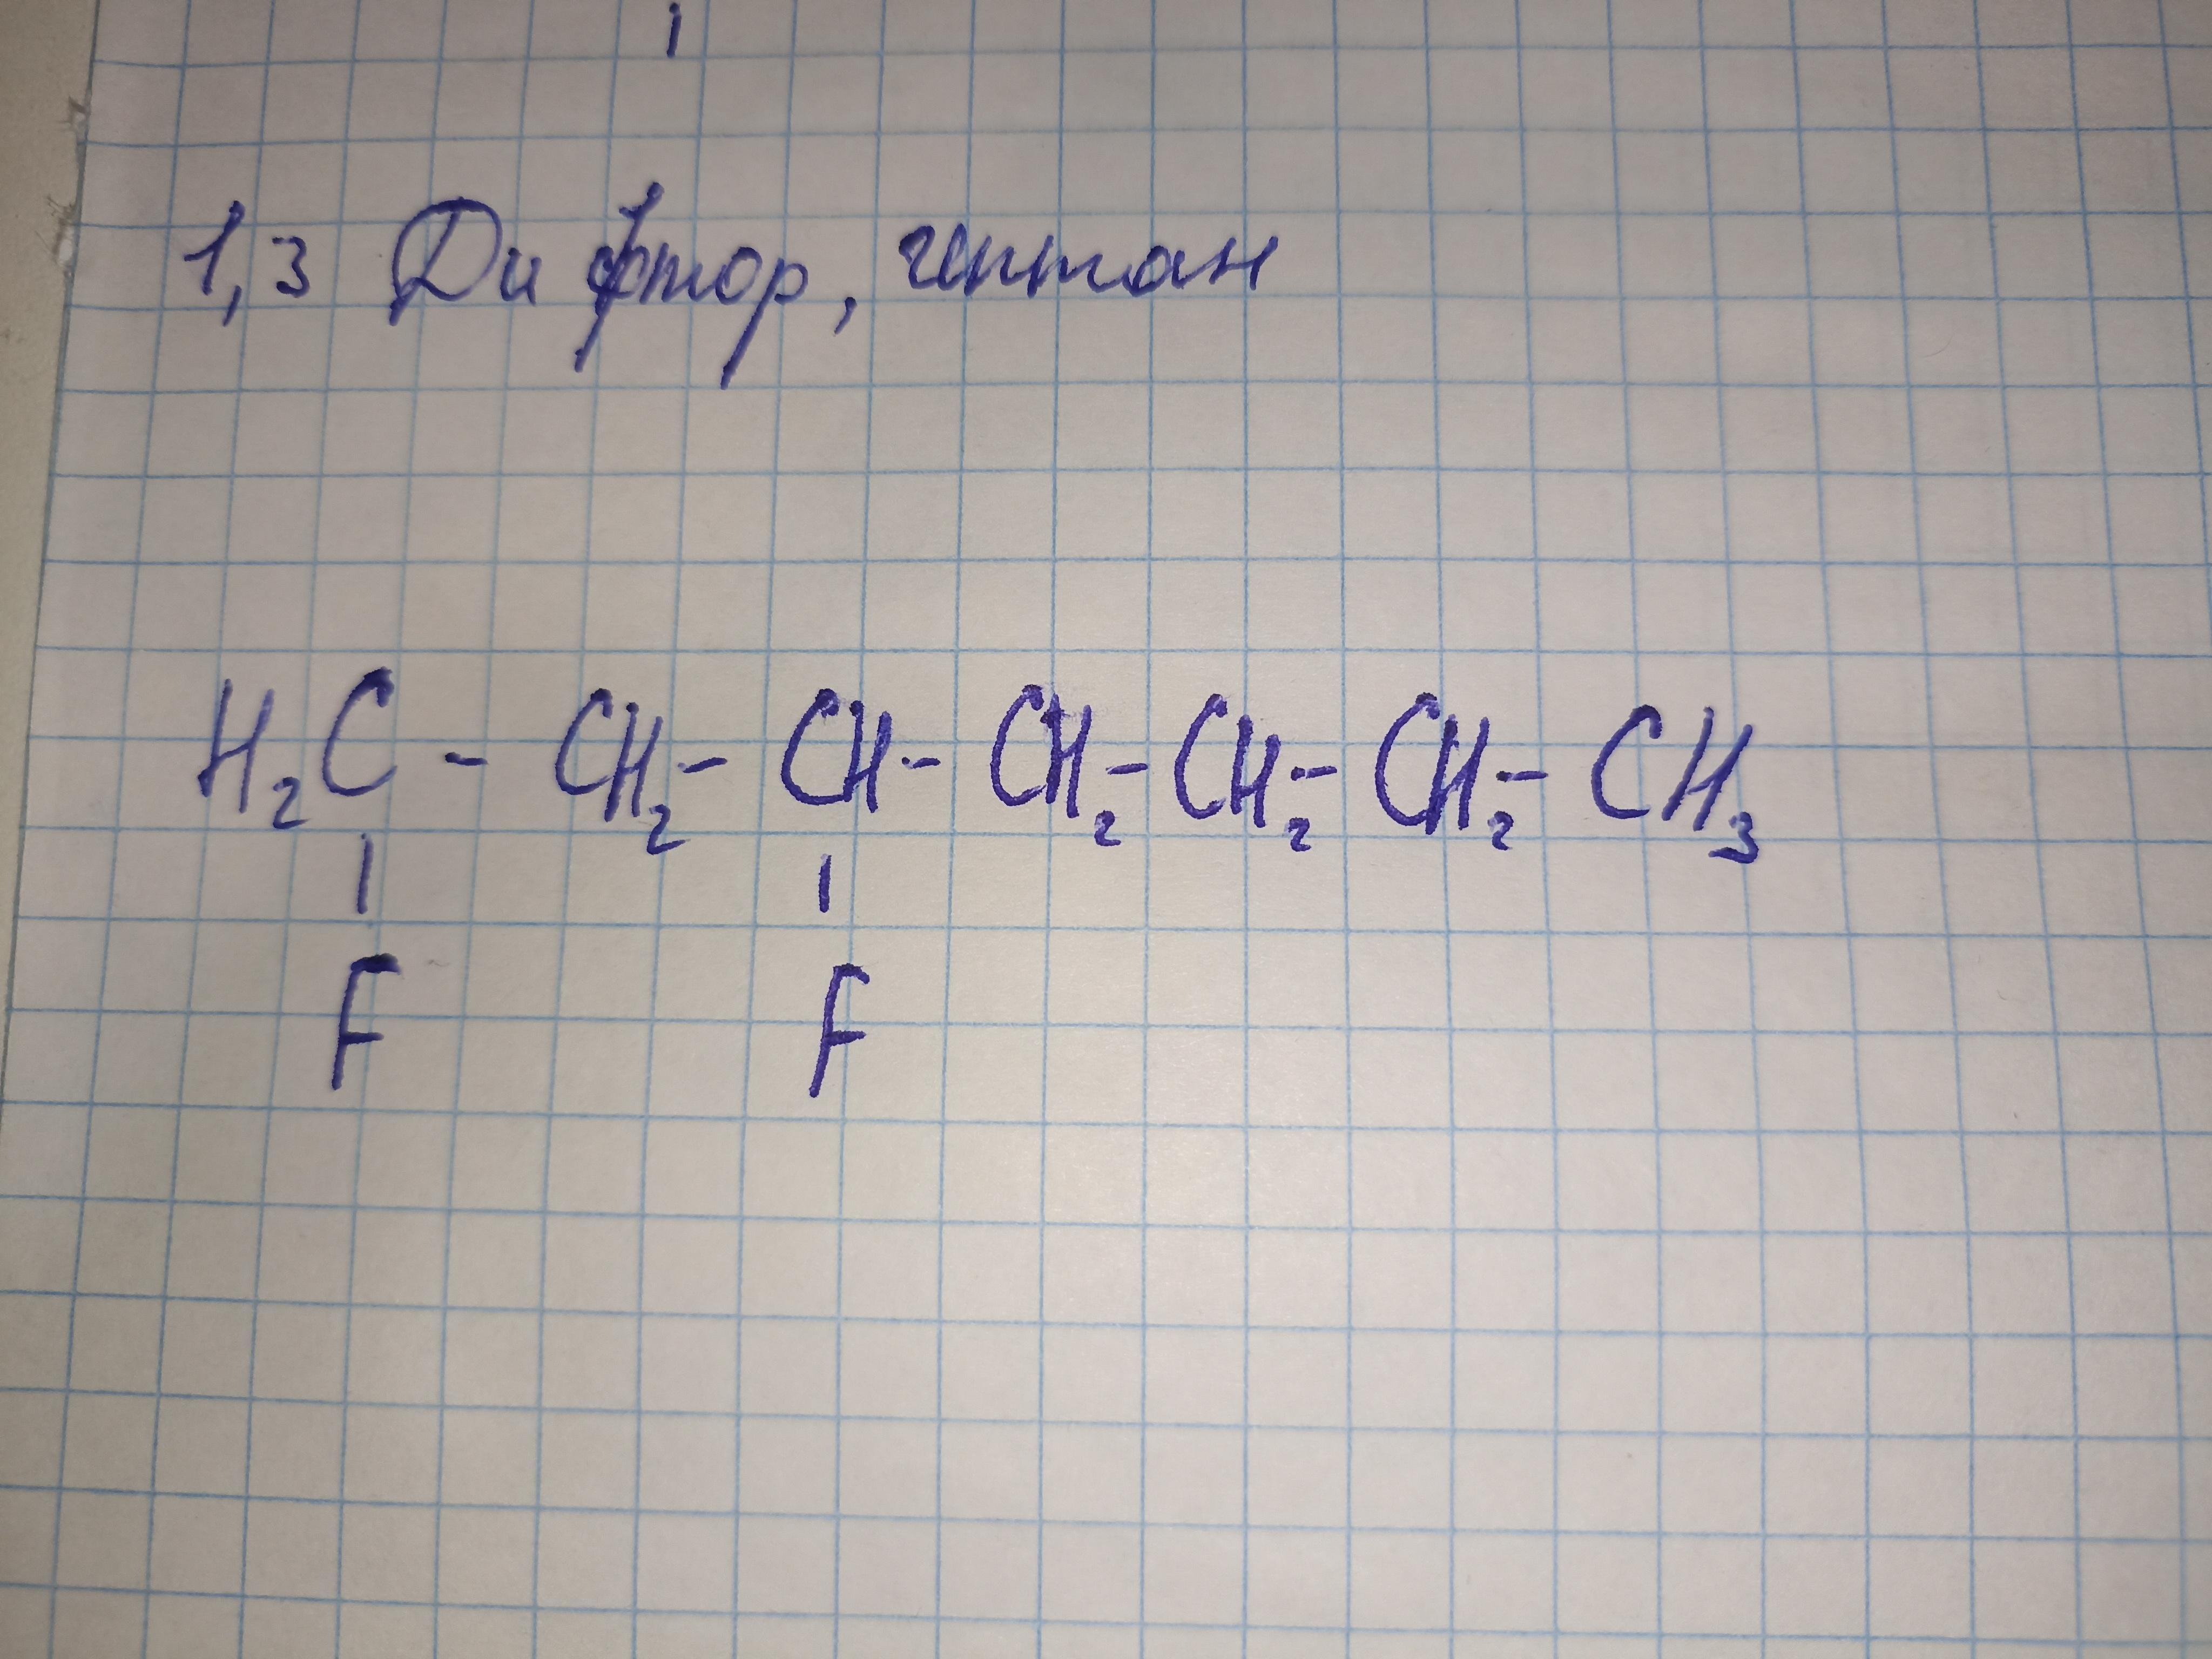 1,3 Ди фтор, гептан
H₂C - CH₂ - CH - CH₂ - CH₂ - CH₂ - CH₃
F F